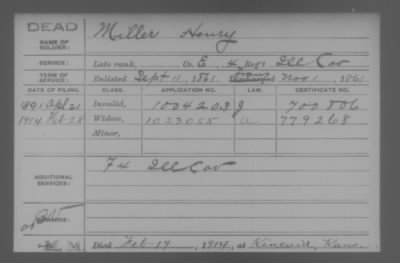 DEAD
NAME OF SOLDIER: Miller Henry
SERVICE: Late rank, Co. E, 4 Reg't Ill Cav
TERM OF SERVICE: Enlisted Sept 11, 1861, Trans Nov 1, 1861
DATE OF FILING. CLASS. APPLICATION NO. LAW. CERTIFICATE NO.
1891 Apl 21 Invalid, 1004203 J 700806
1914 Feb 28 Widow, 1023055 a 779268
Minor,
ADDITIONAL SERVICES: F 4 Ill Cav
REMARKS:
Died Feb 19, 1914, at Kincaid, Kans.